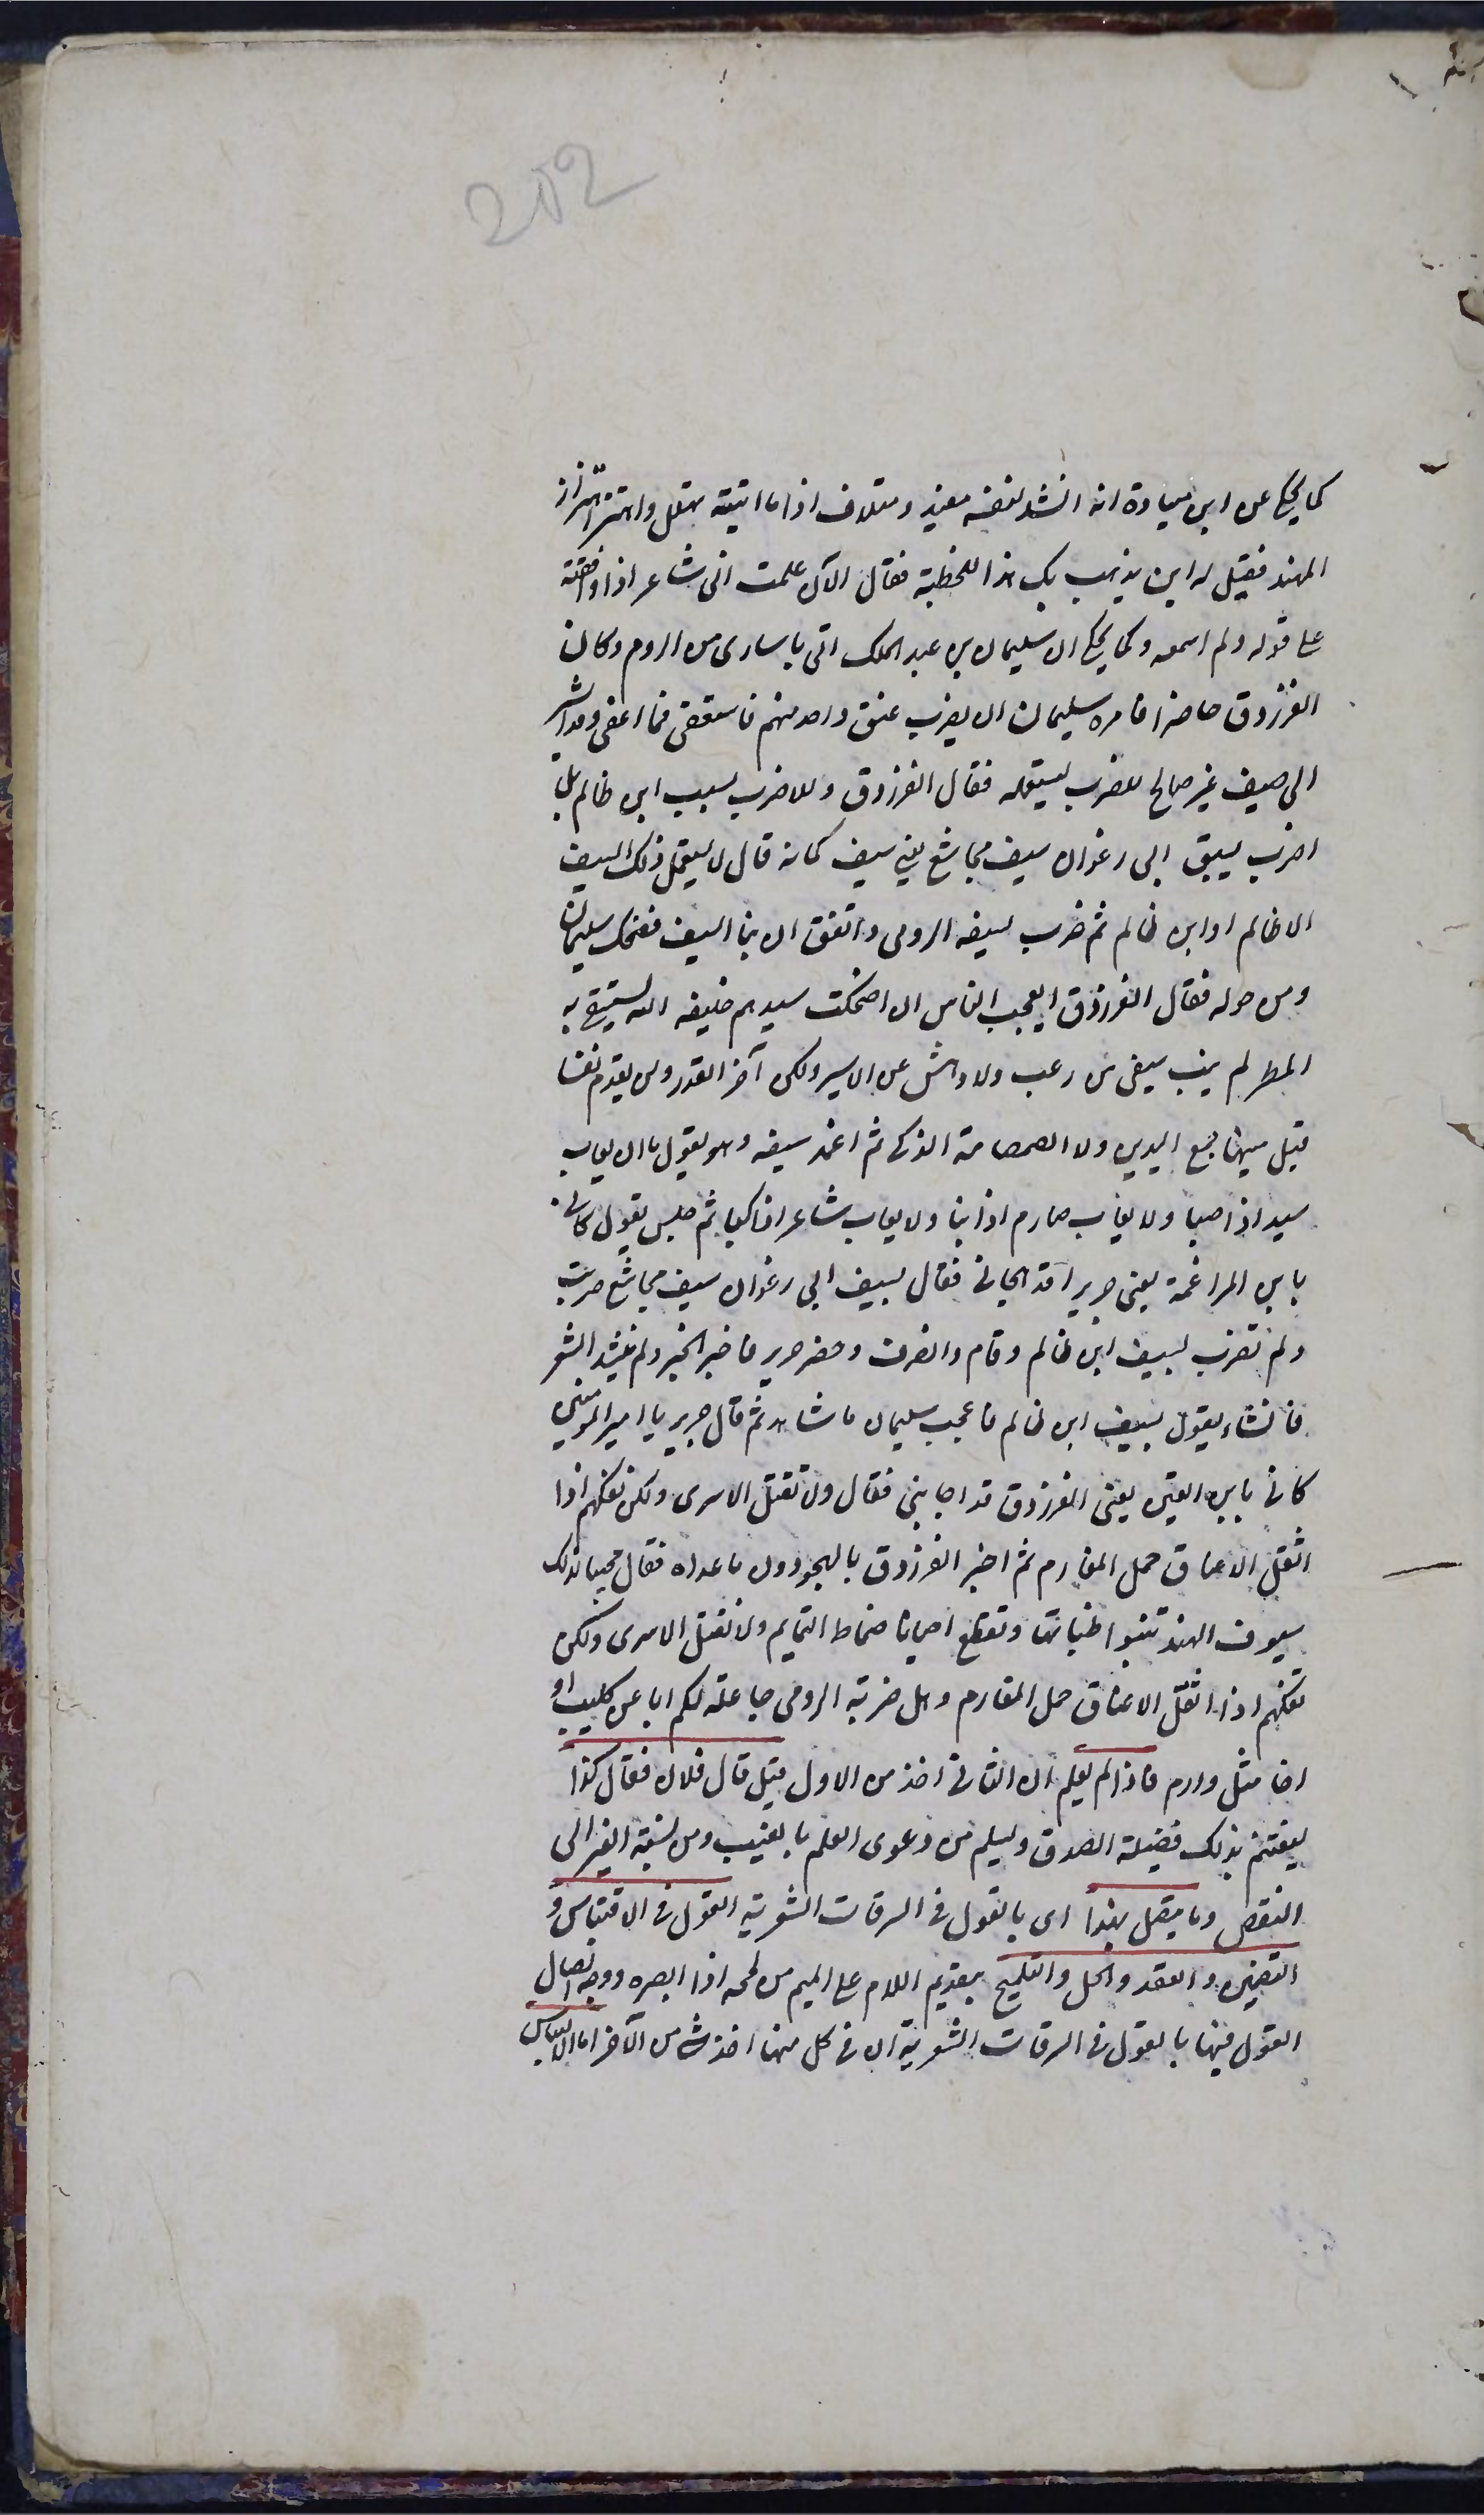 202
كما يحكى عن ابن ميادة انه انشد لنفسه مفيد ومتلاف اذا ما اتيته تهلل واهتز اهتزاز
المهند فقيل له اين يذهب بك هذا للحطيئة فقال الآن علمت انى شاعر اذا وافقته
على قوله ولم اسمعه وكما يحكى ان سليمان بن عبد الملك اتى باسارى من الروم وكان
الفرزدق حاضرا فامره سليمان ان يضرب عنق واحد منهم فاستعفى فما اعفى وقد اشير
الى سيف غير صالح للضرب ليستعمله فقال الفرزدق ولا اضرب بسيف ابن ظالم بل
اضرب بسيف ابى رغوان سيف مجاشع يعنى سيف كانه قال لا يستعمل ذلك السيف
الا ظالم او ابن ظالم ثم ضرب بسيفه الرومى واتفق ان نبا السيف فضحك سليمان
ومن حوله فقال الفرزدق ايعجب الناس ان اضحكت سيدهم خليفة الله يستسقى به
المطر لم ينب سيفى من رعب ولا دهش عن الاسير ولكن آخر القدر ولن يقدم نفسا
قبل ميتها جمع اليدين ولا الصمصامة الذكر ثم اغمد سيفه وهو يقول ما ان يعاب
سيد اذا صبا ولا يعاب صارم اذا نبا ولا يعاب شاعر اذا كبا ثم جلس يقول كانى
بابن المراغة يعنى جريرا قد هجانى فقال بسيف ابى رغوان سيف مجاشع ضربت
ولم تضرب بسيف ابن ظالم وقام وانصرف وحضر جرير فاخبر الخبر ولم ينشد الشعر
فانشاء يقول بسيف ابن ظالم فاعجب سليمان ما شاهد ثم قال جرير يا امير المؤمنين
كانى بابن القين يعنى الفرزدق قد اجابنى فقال ولا نقتل الاسرى ولكن نفكهم اذا
اثقل الاعناق حمل المغارم ثم اخبر الفرزدق بالهجو دون ما عداه فقال مجيبا كذلك
سيوف الهند تنبو ظباتها وتقطع احيانا مناط التمايم ولا نقتل الاسرى ولكن
نفكهم اذا اثقل الاعناق حمل المغارم وهل ضربة الرومى جاعلة لكم ابا عن كليب او
اخا مثل دارم فاذا لم يعلم ان الثانى اخذ من الاول قيل قال فلان فقال كذا
ليغتنم بذلك فضيلة الصدق وليسلم من دعوى العلم بالغيب ومن نسبة الغير الى
النقص ومما يتصل بهذا اى بالقول فى السرقات الشعرية القول فى الاقتباس و
التضمين والعقد والحل والتلميح بتقديم اللام على الميم من لمحه اذا ابصره ووجه اتصال
القول فيها بالقول فى السرقات الشعرية ان فى كل منها اخذ شئ من الآخر اما الاقتباس